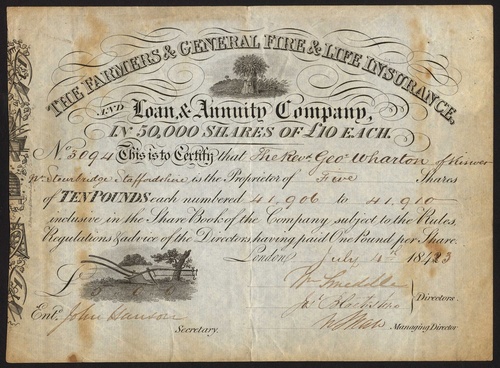 THE FARMERS & GENERAL FIRE & LIFE INSURANCE,
AND Loan, & Annuity Company,
IN 50,000 SHARES OF £10 EACH.
No. 5094 This is to Certify that The Revd. Geo. Wharton of Kinver
Nr. Stourbridge Staffordshire is the Proprietor of Five Shares
of TEN POUNDS each numbered 41,906 to 41,910
inclusive in the Share Book of the Company subject to the Rules,
Regulations & advice of the Directors having paid One Pound per Share.
London July 4th 1843
£
Directors.
Entd. John Secretary.
W Shaw Managing Director